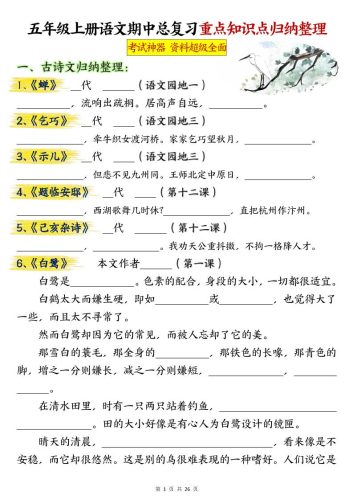 五年级上册语文期中总复习重点知识点归纳整理
考试神器 资料超级全面
一、古诗文归纳整理：
1、《蝉》 __代 _____（语文园地一）
__________，流响出疏桐。居高声自远，__________。
2、《乞巧》 __代 _____（语文园地三）
__________，牵牛织女渡河桥。家家乞巧望秋月，__________。
3、《示儿》 __代 _____（语文园地三）
__________，但悲不见九州同。王师北定中原日，__________。
4、《题临安邸》 __代 _____（第十二课）
__________，西湖歌舞几时休?__________，直把杭州作汴州。
5、《己亥杂诗》 __代 _____（第十二课）
__________，__________。我劝天公重抖擞，不拘一格降人才。
6、《白鹭》 本文作者_____（第一课）
白鹭是__________。色素的配合，身段的大小，一切都很适宜。
白鹤太大而嫌生硬，即如__________或__________，也觉得大了
一些，而且太不寻常了。
然而白鹭却因为它的常见，而被人忘却了它的美。
那雪白的蓑毛，那全身的__________，那铁色的长喙，那青色的
脚，增之一分则嫌长，减之一分则嫌__________，__________，__________
__________。
在清水田里，时有一只两只站着钓鱼，__________
__________。田的大小好像是有心人为白鹭设计的镜匣。
晴天的清晨，__________，看来像是不
安稳，而它却很悠然。这是别的鸟很难表现的一种嗜好。人们说它是
第 1 页 共 26 页